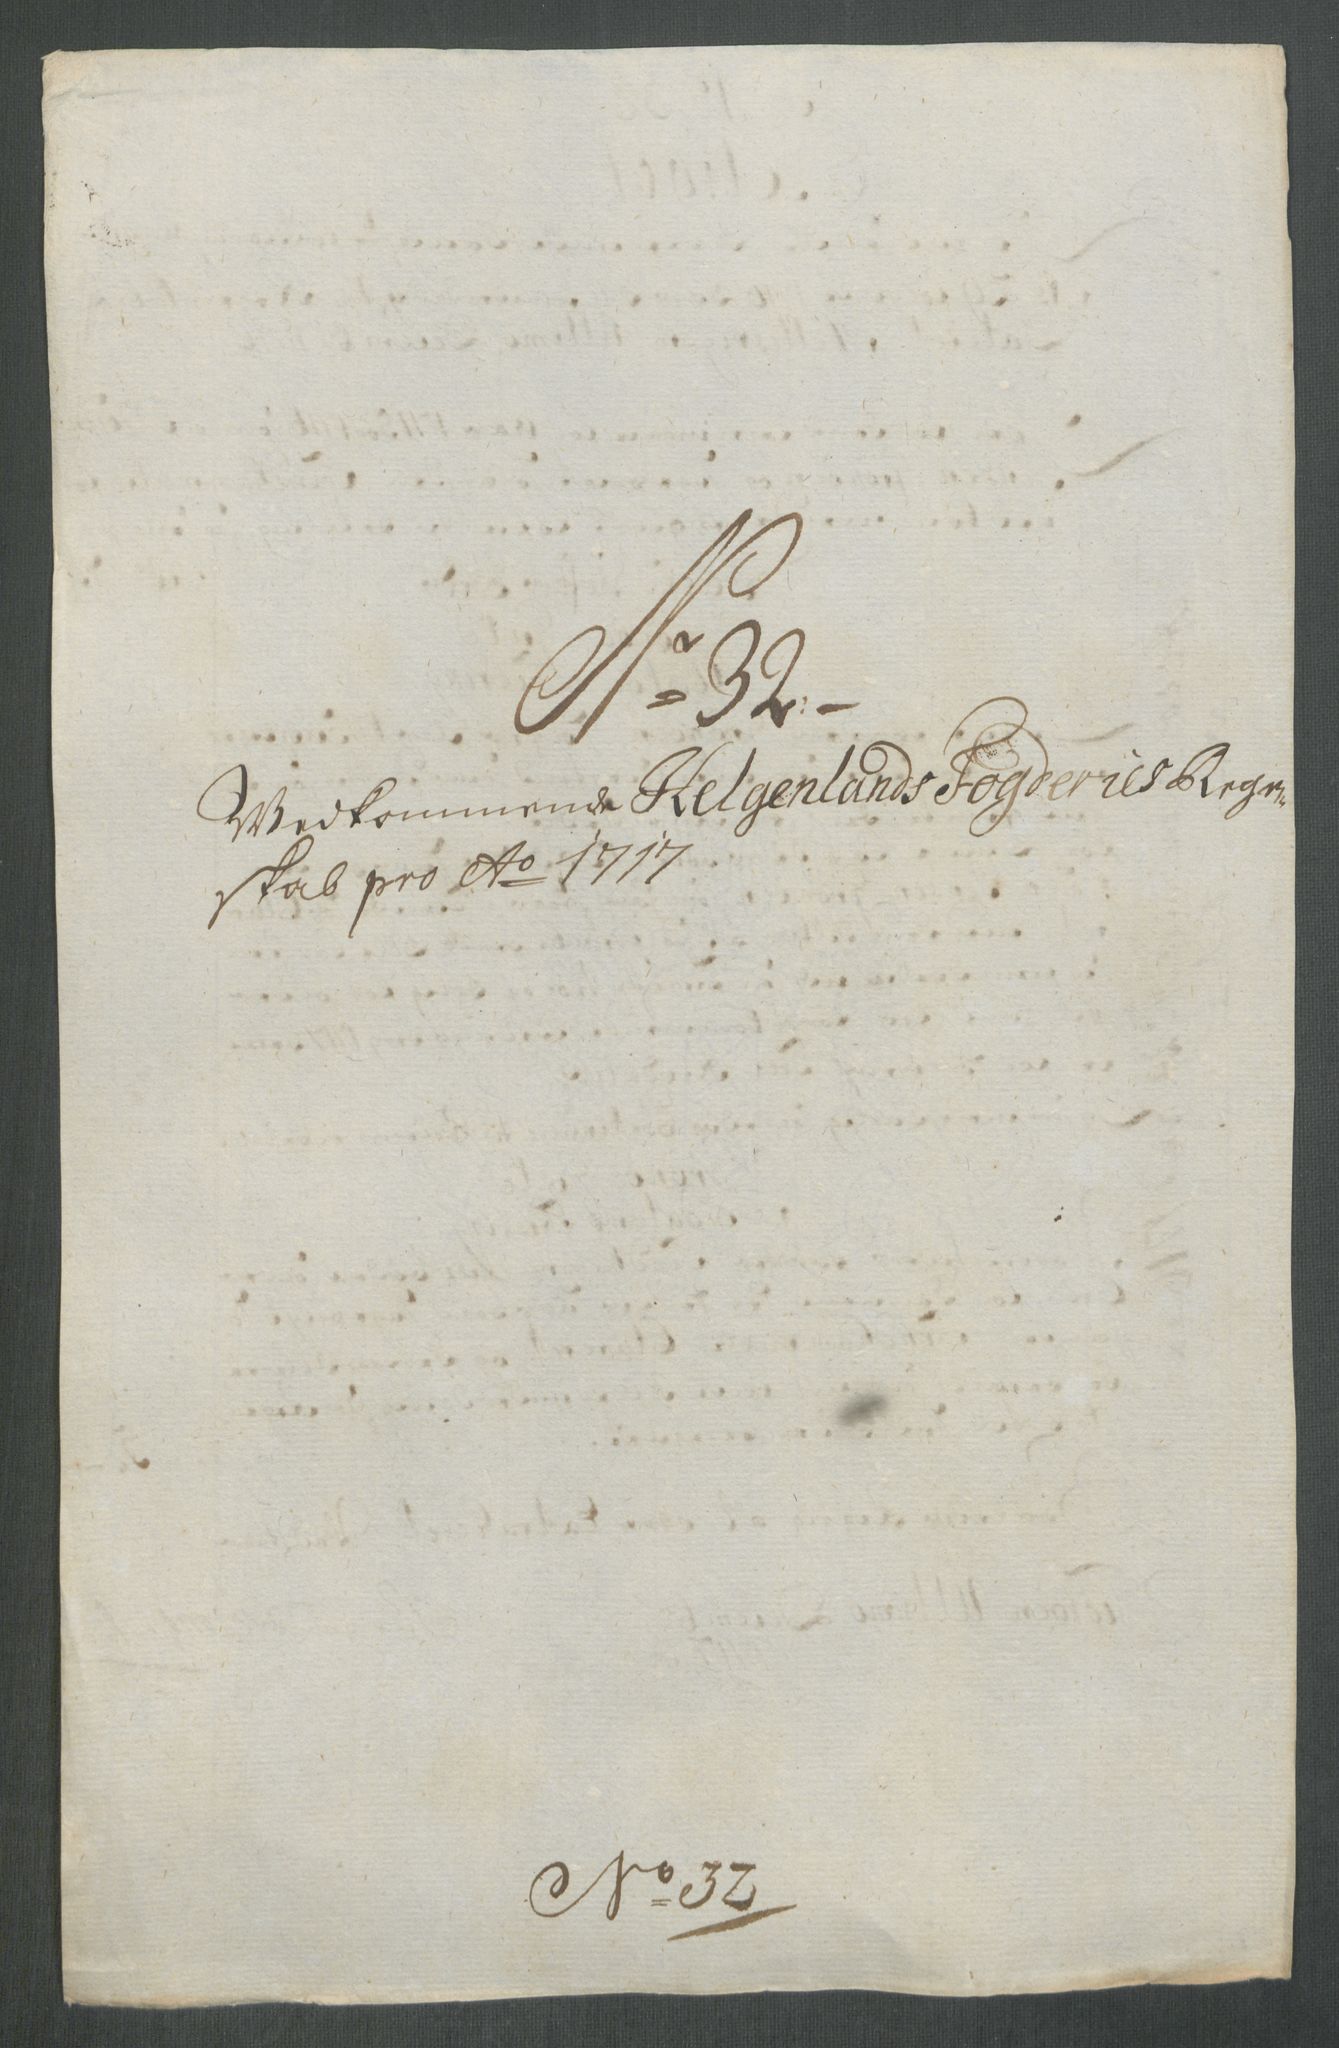 No 32.-
Wedkommende Helgenlands Fogderies Regn-
skab pro Ao 1717
No 32